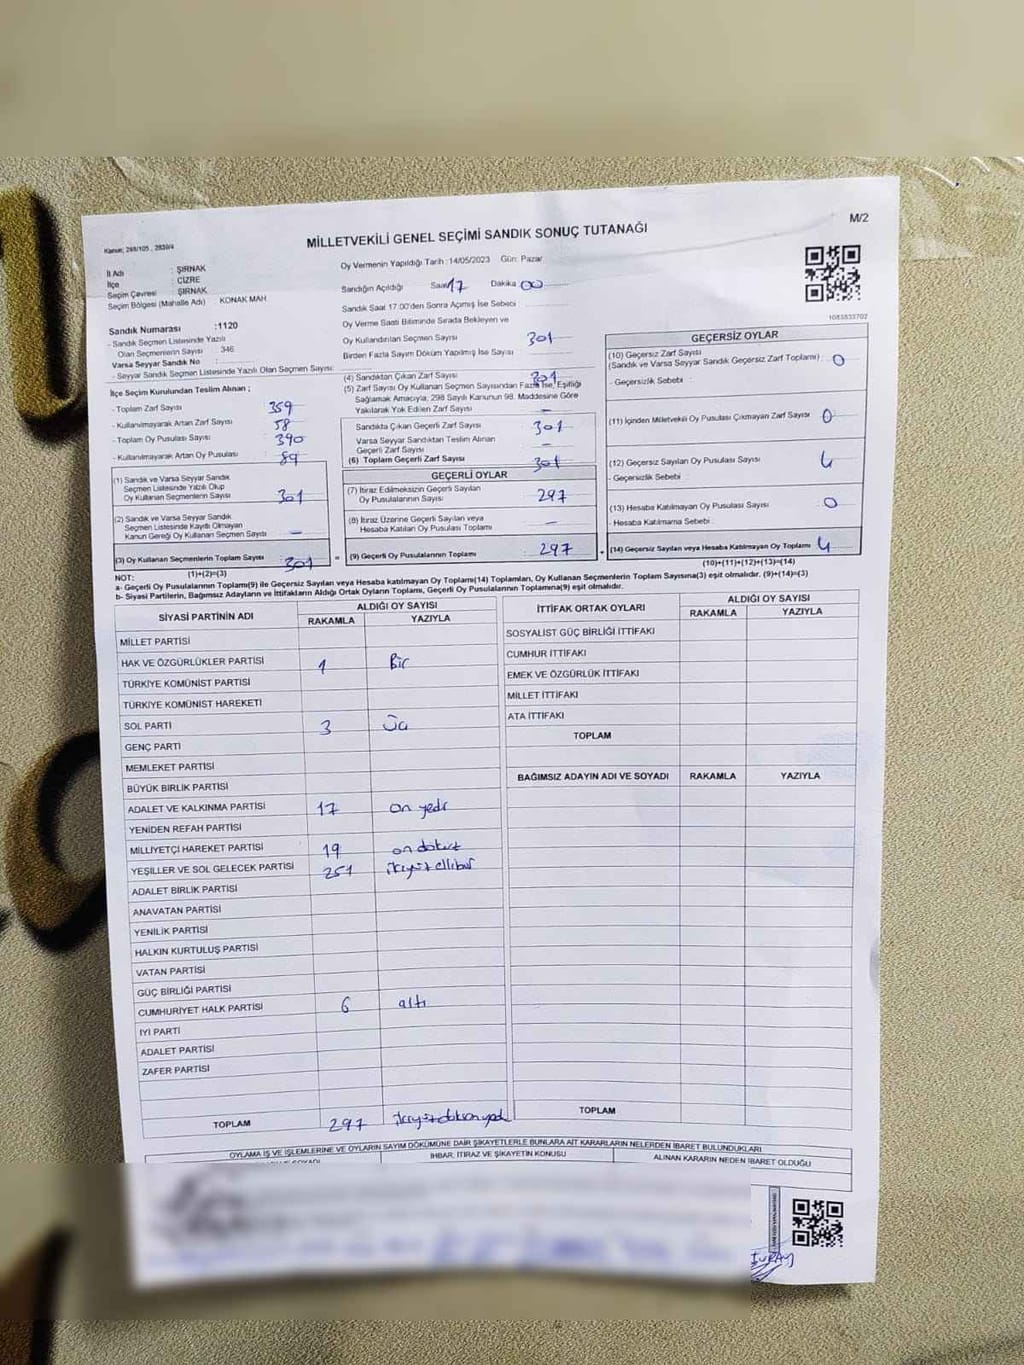 M/2
Kanun; 298/105 , 2839/4
MİLLETVEKİLİ GENEL SEÇİMİ SANDIK SONUÇ TUTANAĞI
İl Adı : ŞIRNAK
İlçe : CİZRE
Seçim Çevresi : ŞIRNAK
Seçim Bölgesi (Mahalle Adı) KONAK MAH
Sandık Numarası :1120
- Sandık Seçmen Listesinde Yazılı
Olan Seçmenlerin Sayısı 346
Varsa Seyyar Sandık No :
- Seyyar Sandık Seçmen Listesinde Yazılı Olan Seçmen Sayısı:
İlçe Seçim Kurulundan Teslim Alınan ;
- Toplam Zarf Sayısı 359
- Kullanılmayarak Artan Zarf Sayısı 58
- Toplam Oy Pusulası Sayısı 390
- Kullanılmayarak Artan Oy Pusulası 89
(1) Sandık ve Varsa Seyyar Sandık
Seçmen Listesinde Yazılı Olup
Oy Kullanan Seçmenlerin Sayısı 301
(2) Sandık ve Varsa Seyyar Sandık
Seçmen Listesinde Kayıtlı Olmayan
Kanun Gereği Oy Kullanan Seçmen Sayısı –
(3) Oy Kullanan Seçmenlerin Toplam Sayısı 301
(1)+(2)=(3)
Oy Vermenin Yapıldığı Tarih :14/05/2023 Gün: Pazar
Sandığın Açıldığı Saat 17 Dakika 00
Sandık Saat 17:00'den Sonra Açımış İse Sebebi :
Oy Verme Saati Bitiminde Sırada Bekleyen ve
Oy Kullandırılan Seçmen Sayısı 301
Birden Fazla Sayım Döküm Yapılmış İse Sayısı
(4) Sandıktan Çıkan Zarf Sayısı 301
(5) Zarf Sayısı Oy Kullanan Seçmen Sayısından Fazla İse, Eşitliği
Sağlamak Amacıyla; 298 Sayılı Kanunun 98. Maddesine Göre
Yakılarak Yok Edilen Zarf Sayısı –
Sandıkta Çıkan Geçerli Zarf Sayısı 301
Varsa Seyyar Sandıktan Teslim Alınan
Geçerli Zarf Sayısı –
(6) Toplam Geçerli Zarf Sayısı 301
GEÇERLİ OYLAR
(7) İtiraz Edilmeksizin Geçerli Sayılan
Oy Pusulalarının Sayısı 297
(8) İtiraz Üzerine Geçerli Sayılan veya
Hesaba Katılan Oy Pusulası Toplamı –
= (9) Geçerli Oy Pusulalarının Toplamı 297
1083833702
GEÇERSİZ OYLAR
(10) Geçersiz Zarf Sayısı
(Sandık ve Varsa Seyyar Sandık Geçersiz Zarf Toplamı) 0
- Geçersizlik Sebebi :
(11) İçinden Milletvekili Oy Pusulası Çıkmayan Zarf Sayısı 0
(12) Geçersiz Sayılan Oy Pusulası Sayısı 4
- Geçersizlik Sebebi :
(13) Hesaba Katılmayan Oy Pusulası Sayısı 0
- Hesaba Katılmama Sebebi :
+ (14) Geçersiz Sayılan veya Hesaba Katılmayan Oy Toplamı 4
(10)+(11)+(12)+(13)=(14)
NOT:
a- Geçerli Oy Pusulalarının Toplamı(9) ile Geçersiz Sayılan veya Hesaba katılmayan Oy Toplamı(14) Toplamları, Oy Kullanan Seçmenlerin Toplam Sayısına(3) eşit olmalıdır. (9)+(14)=(3)
b- Siyasi Partilerin, Bağımsız Adayların ve İttifakların Aldığı Ortak Oyların Toplamı, Geçerli Oy Pusulalarının Toplamına(9) eşit olmalıdır.
SİYASİ PARTİNİN ADI ALDIĞI OY SAYISI
RAKAMLA YAZIYLA
MİLLET PARTİSİ
HAK VE ÖZGÜRLÜKLER PARTİSİ 1 Bir
TÜRKİYE KOMÜNİST PARTİSİ
TÜRKİYE KOMÜNİST HAREKETİ
SOL PARTİ 3 Üç
GENÇ PARTİ
MEMLEKET PARTİSİ
BÜYÜK BİRLİK PARTİSİ
ADALET VE KALKINMA PARTİSİ 17 on yedi
YENİDEN REFAH PARTİSİ
MİLLİYETÇİ HAREKET PARTİSİ 19 on dokuz
YEŞİLLER VE SOL GELECEK PARTİSİ 251 ikiyüz ellibir
ADALET BİRLİK PARTİSİ
ANAVATAN PARTİSİ
YENİLİK PARTİSİ
HALKIN KURTULUŞ PARTİSİ
VATAN PARTİSİ
GÜÇ BİRLİĞİ PARTİSİ
CUMHURİYET HALK PARTİSİ 6 altı
İYİ PARTİ
ADALET PARTİSİ
ZAFER PARTİSİ
TOPLAM 297 ikiyüz doksan yedi
İTTİFAK ORTAK OYLARI ALDIĞI OY SAYISI
RAKAMLA YAZIYLA
SOSYALİST GÜÇ BİRLİĞİ İTTİFAKI
CUMHUR İTTİFAKI
EMEK VE ÖZGÜRLÜK İTTİFAKI
MİLLET İTTİFAKI
ATA İTTİFAKI
TOPLAM
BAĞIMSIZ ADAYIN ADI VE SOYADI RAKAMLA YAZIYLA
TOPLAM
OYLAMA İŞ VE İŞLEMLERİNE VE OYLARIN SAYIM DÖKÜMÜNE DAİR ŞİKAYETLERLE BUNLARA AİT KARARLARIN NELERDEN İBARET BULUNDUKLARI
İHBAR, İTİRAZ VE ŞİKAYETİN KONUSU ALINAN KARARIN NEDEN İBARET OLDUĞU